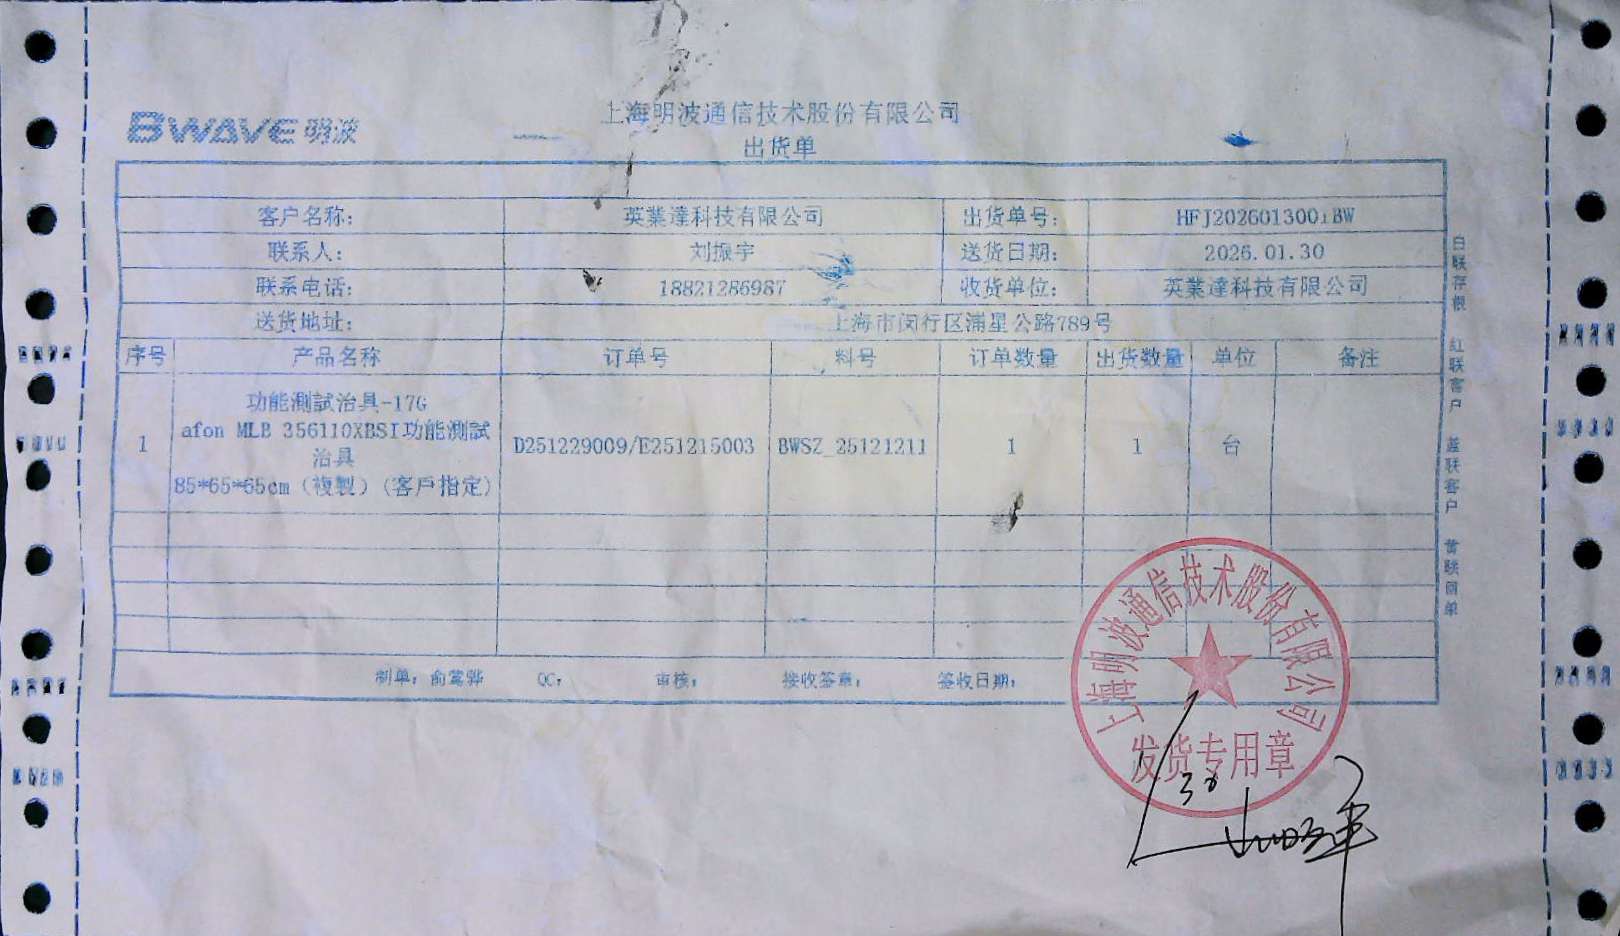 BWAVE 明波
上海明波通信技术股份有限公司
出货单
客户名称: 英業達科技有限公司 出货单号: HFJ2026013001BW
联系人: 刘振宇 送货日期: 2026.01.30
联系电话: 18821286987 收货单位: 英業達科技有限公司
送货地址: 上海市闵行区浦星公路789号
序号 产品名称 订单号 料号 订单数量 出货数量 单位 备注
功能測試治具-17G
afon MLB 356110XBSI功能測試
1 治具 D251229009/E251215003 BWSZ_25121211 1 1 台
85*65*65cm(複製)(客戶指定)
制单: QC: 审核: 接收签章: 签收日期:
白联存根 红联客户 蓝联客户 黄联回单
上海明波通信技术股份有限公司
发货专用章